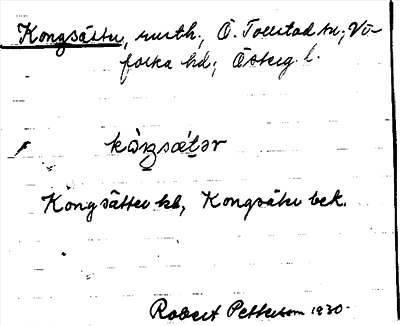 Kongsätter, urnth., Ö. Tollstad sn; Vi-
folka hd; Österg. l.
kòŋsætər
Kongsätter kb, Kongsäter bek.
Robert Petterson 1930